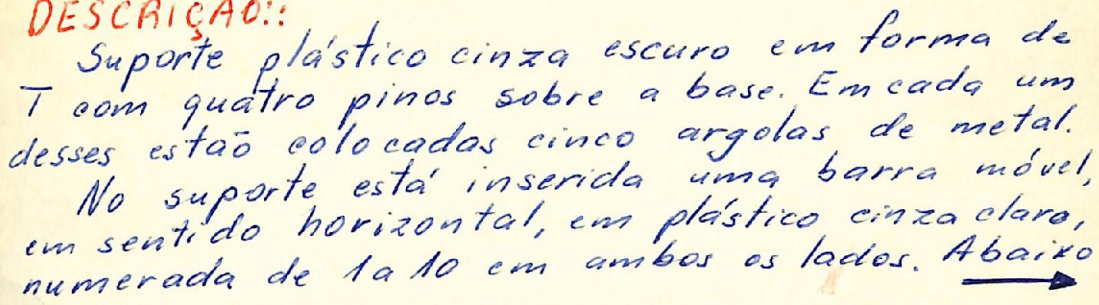 DESCRIÇAO::
Suporte plástico cinza escuro em forma de
T com quatro pinos sobre a base. Em cada um
desses estaõ colocadas cinco argolas de metal.
No suporte está inserida uma barra móvel,
em sentido horizontal, em plástico cinza claro,
numerada de 1 a 10 em ambos os lados. Abaixo